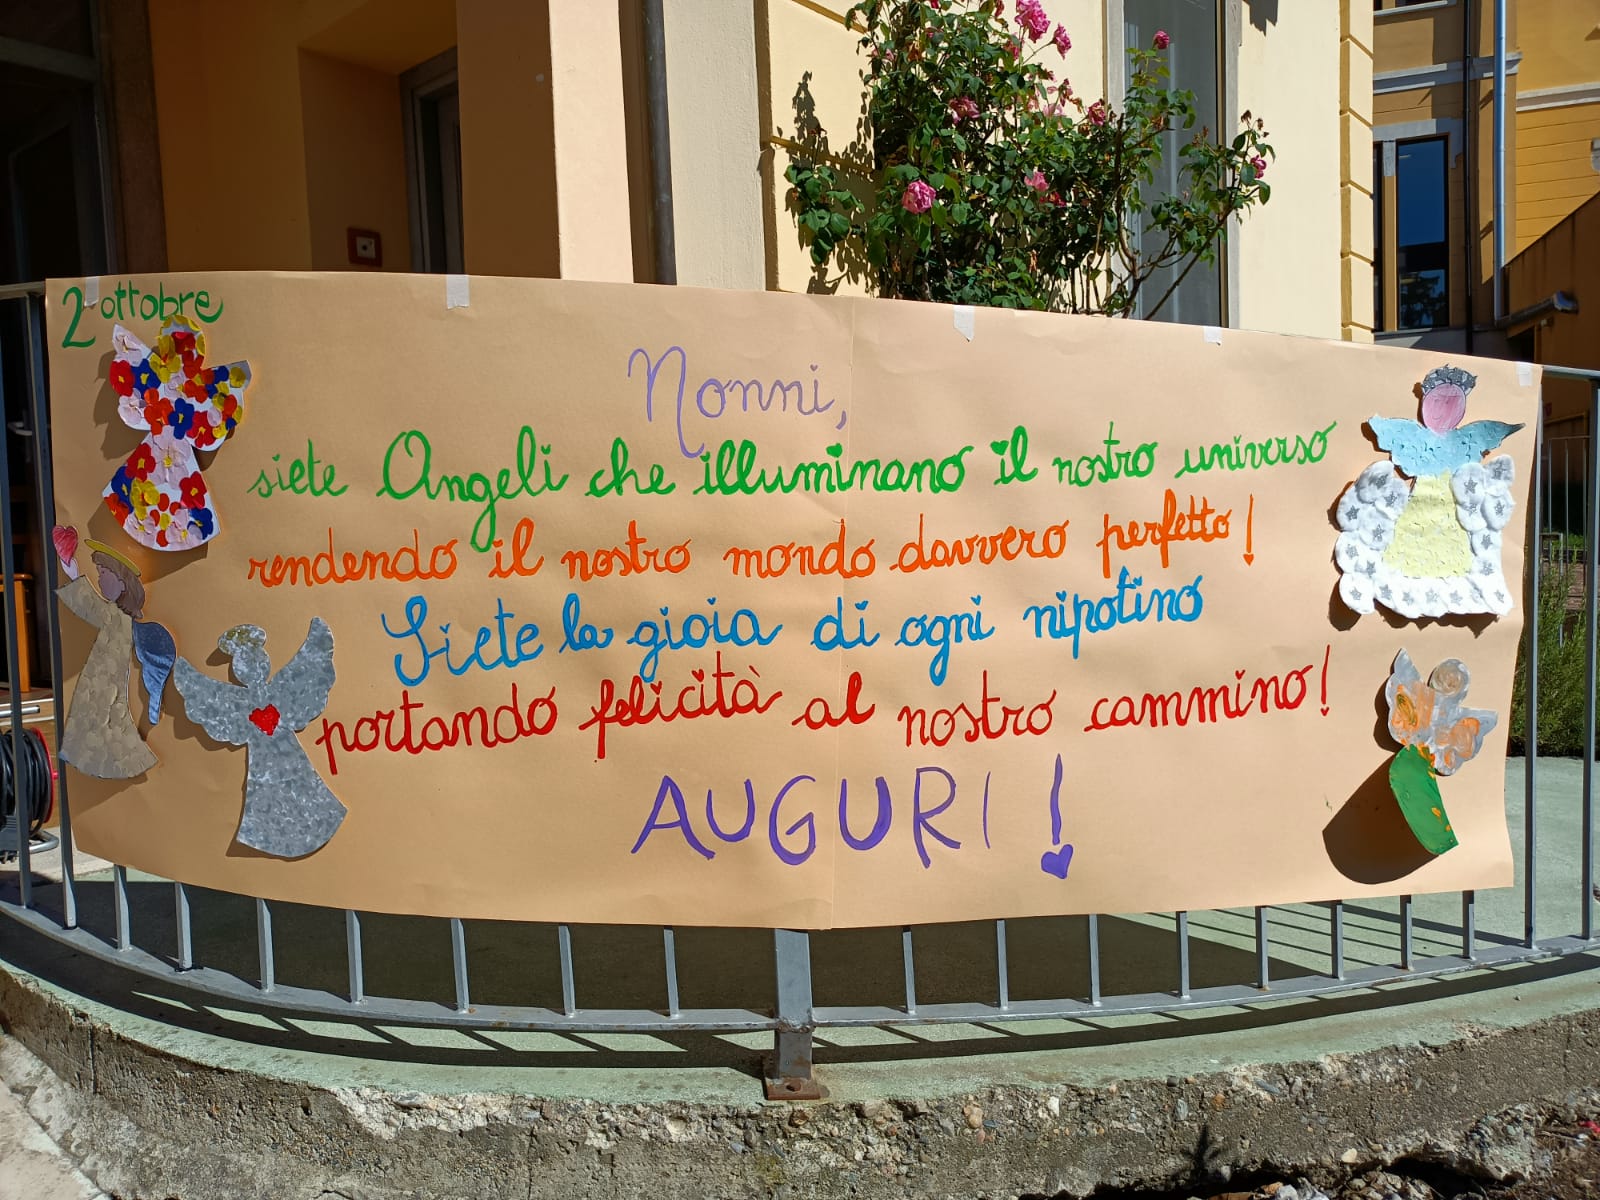 2 ottobre
Nonni,
siete Angeli che illuminano il nostro universo
rendendo il nostro mondo davvero perfetto!
Siete la gioia di ogni nipotino
portando felicità al nostro cammino!
AUGURI!